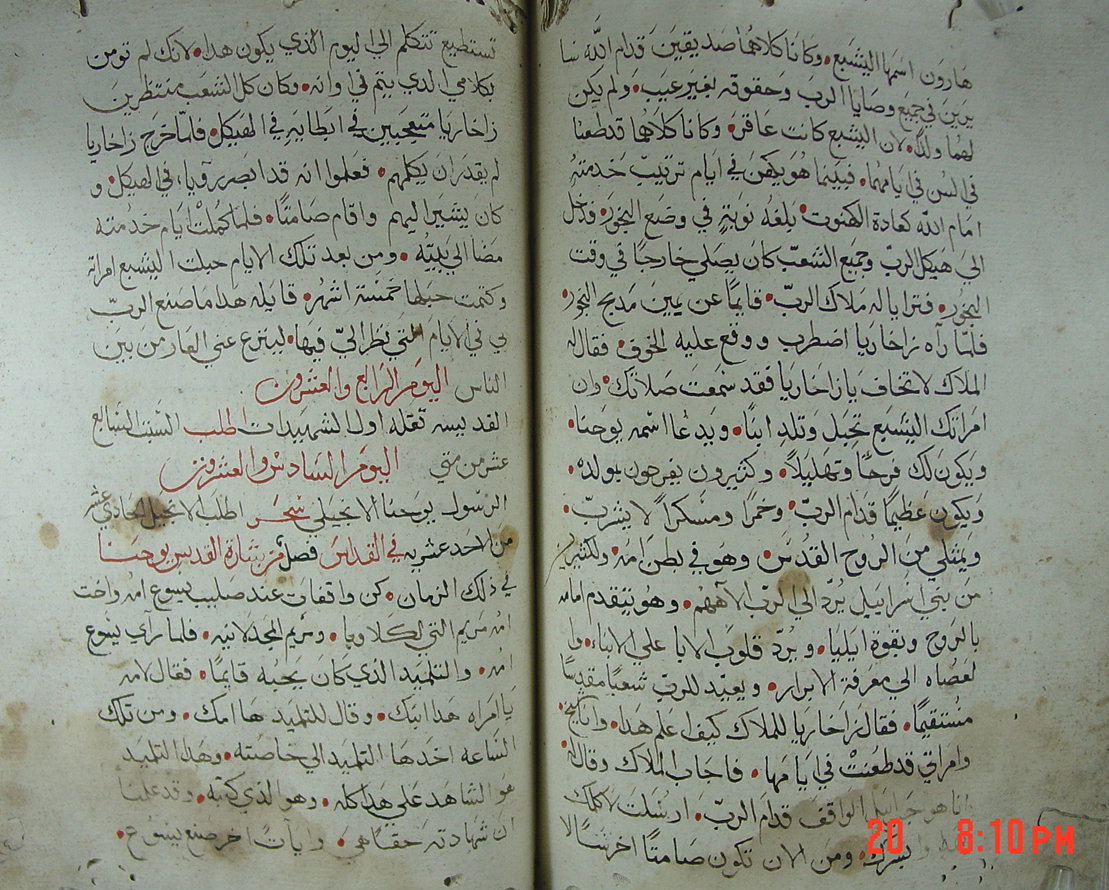 هارون اسمها اليشبع • وكانا كلاهما صديقين قدام الله سا
يرين في جميع وصايا الرب وحقوقه بغير عيب • ولم يكن
لهما ولد • لان اليشبع كانت عاقر • وكانا كلاهما قد طعنا
في السن في ايامهما • فبينما هو يكهن في ايام ترتيب خدمته
امام الله كعادة الكهنوت • بلغه نوبته في وضع البخور • فدخل
الى هيكل الرب وجميع الشعب كان يصلي خارجا في وقت
البخور • فترايا له ملاك الرب • قايما عن يمين مدبح البخور •
فلما رآه زاخاريا اضطرب ووقع عليه الخوف • فقال له
الملاك لا تخاف يا زاخاريا فقد سمعت صلاتك • وان
امراتك اليشبع تحبل وتلد ابنا • ويدعا اسمه يوحنا •
ويكون لك فرحا وتهليلا • وكثيرون يفرحون بمولده •
ويكون عظيما قدام الرب • وخمرا ومسكرا لا يشرب •
ويمتلي من الروح القدس • وهو في بطن امه • ولكثير
من بني اسراييل يرد الي الرب الاههم • وهو يتقدم امامه
بالروح وبقوة ايليا • ويرد قلوب الابا علي الابناء • وا
لعصاه الي معرفة الابرار • ويعيد للرب شعبا مقدسا
مستقيما • فقال زاخاريا للملاك كيف اعلم هدا • وانا شيخ
وامراتي قد طعنت في ايامها • فاجاب الملاك وقال له
انا هو جبراييل الواقف قدام الرب • ارسلت لاكلمك
ابشرك • ومن الان تكون صامتا اخرسا لا
تستطيع تتكلم الي اليوم الذي يكون هدا • لانك لم تومن
بكلامي الدي يتم في اوانه • وكان كل الشعب منتظرين
زاخاريا متعجبين في ابطايه في الهيكل • فلما خرج زاخاريا
لم يقدر ان يكلمهم • فعلموا انه قد ابصر رويا في الهيكل • و
كان يشير اليهم واقام صامتا • فلما كملت ايام خدمته
مضا الي بيته • ومن بعد تلك الايام حبلت اليشبع امراته
وكتمت حبلها خمسة اشهر • قايله هدا ما صنع الرب
بي في الايام التي نظر الي فيها • لينزع عني العار من بين
الناس اليوم الرابع والعشرون
القديسه تقله اول الشهيدات اطلب السبت السابع
عشر من متي اليوم السادس والعشرون
الرسول يوحنا الانجيلي سحر اطلب الانجيل الحادي عشر
من الاحد عشريه في القداس فصل من بشارة القديس يوحنا
في ذلك الزمان • كن واقفات عند صليب يسوع امه واخت
امه مريم التي لكلاوبا • ومريم المجدلانيه • فلما راي يسوع
امه • والتلميد الذي كان يحبه قايما • فقال لامه
يا امراه هدا ابنك • وقال للتلميد ها امك • ومن تلك
الساعه اخدها التلميد الي خاصته • وهدا التلميد
هو الشاهد علي هدا كله • وهو الذي كتبه • وقد علمنا
ان شهادته حقا هي • وايات اخر صنع يسوع •
20 8:10 PM